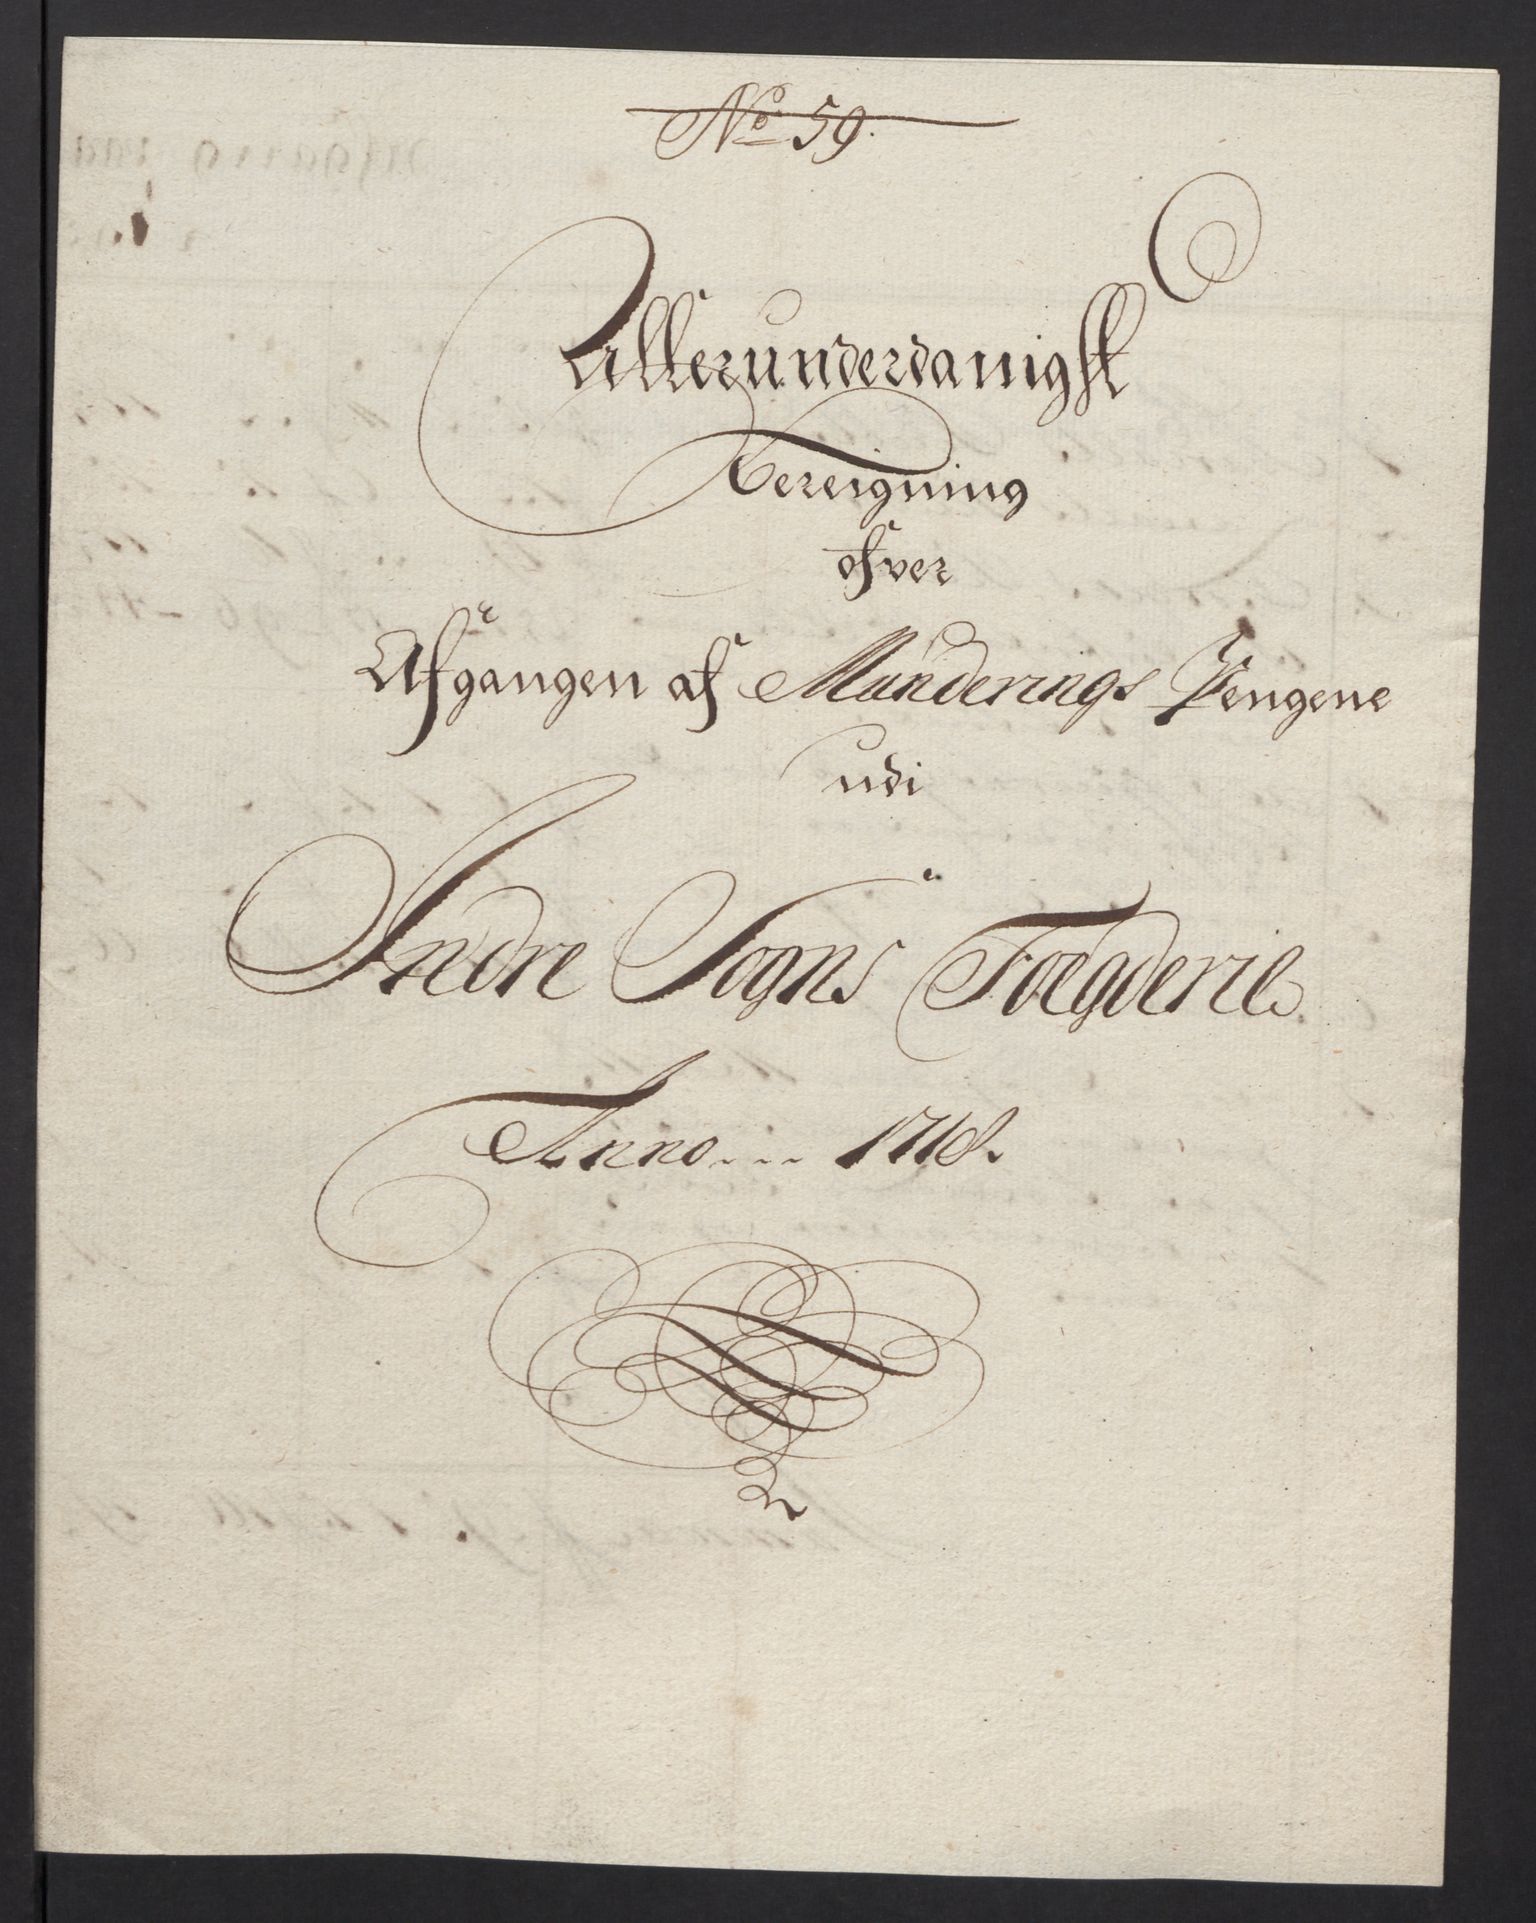 No 59.
Allerunderdanigst
Bereigning
ofver
Afgangen af Munderings Pengene
udi
Indre Sogns Foegderie
Anno... 1718.